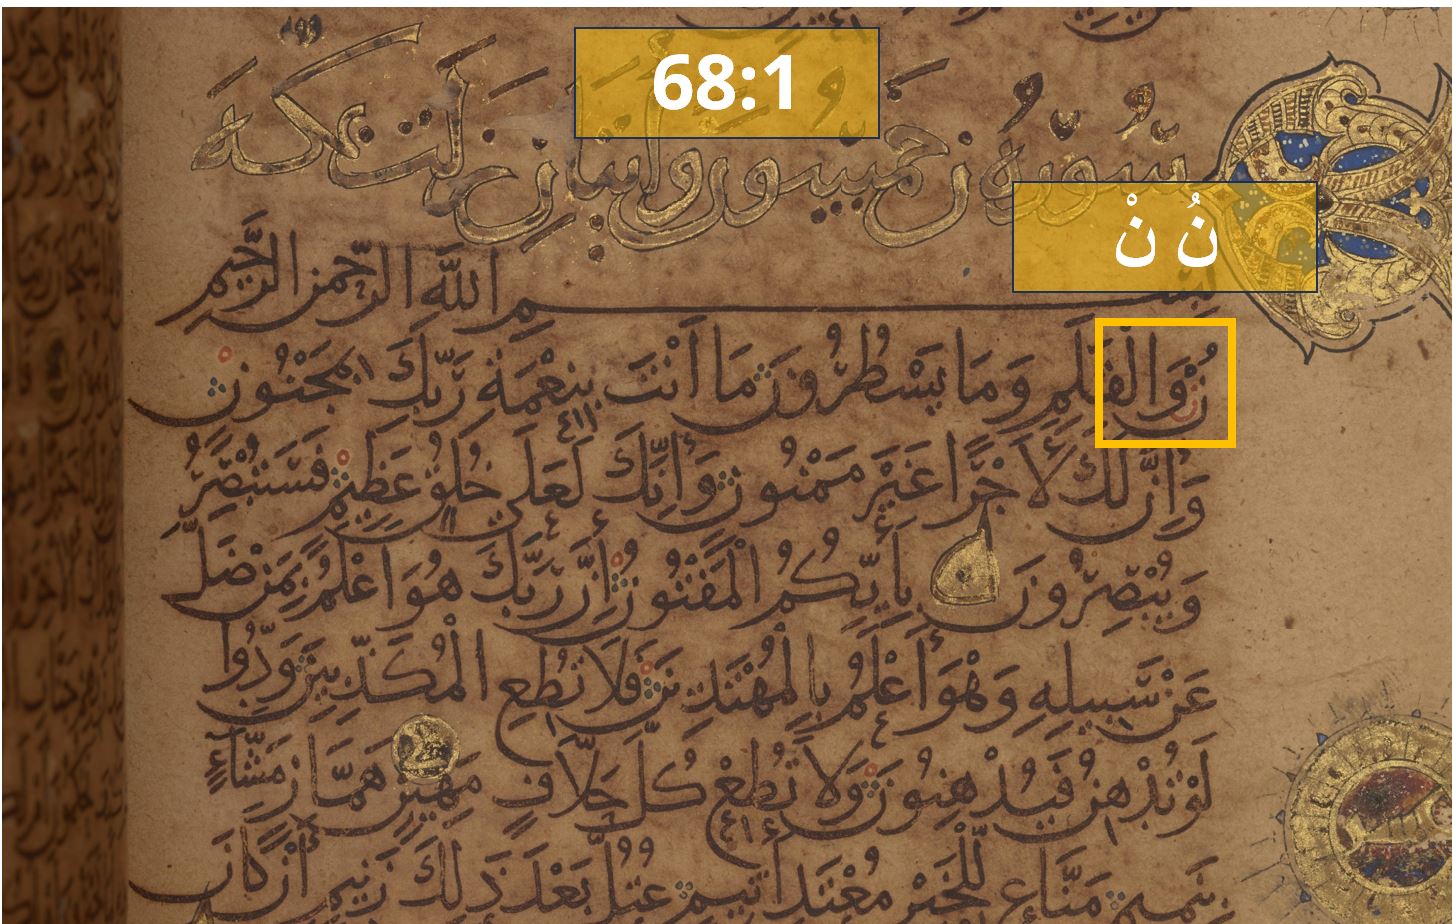 68:1
سُورَةُ ن
نُ نْ
بسم الله الرَّحمن الرَّحِيم
نُ وَالْقَلَمِ وَمَا يَسْطُرُونَ مَا أَنْتَ بِنِعْمَةِ رَبِّكَ بِمَجْنُونٍ
وَإِنَّ لَكَ لَأَجْرًا غَيْرَ مَمْنُونٍ وَإِنَّكَ لَعَلَى خُلُقٍ عَظِيمٍ فَسَتُبْصِرُ
وَيُبْصِرُونَ بِأَيِّكُمُ الْمَفْتُونُ إِنَّ رَبَّكَ هُوَ أَعْلَمُ بِمَنْ ضَلَّ
عَنْ سَبِيلِهِ وَهْوَ أَعْلَمُ بِالْمُهْتَدِينَ فَلَا تُطِعِ الْمُكَذِّبِينَ وَدُّوا
لَوْ تُدْهِنُ فَيُدْهِنُونَ وَلَا تُطِعْ كُلَّ حَلَّافٍ مَهِينٍ هَمَّازٍ مَشَّاءٍ
بِنَمِيمٍ مَنَّاعٍ لِلْخَيْرِ مُعْتَدٍ أَثِيمٍ عُتُلٍّ بَعْدَ ذَلِكَ زَنِيمٍ أَنْ كَانَ